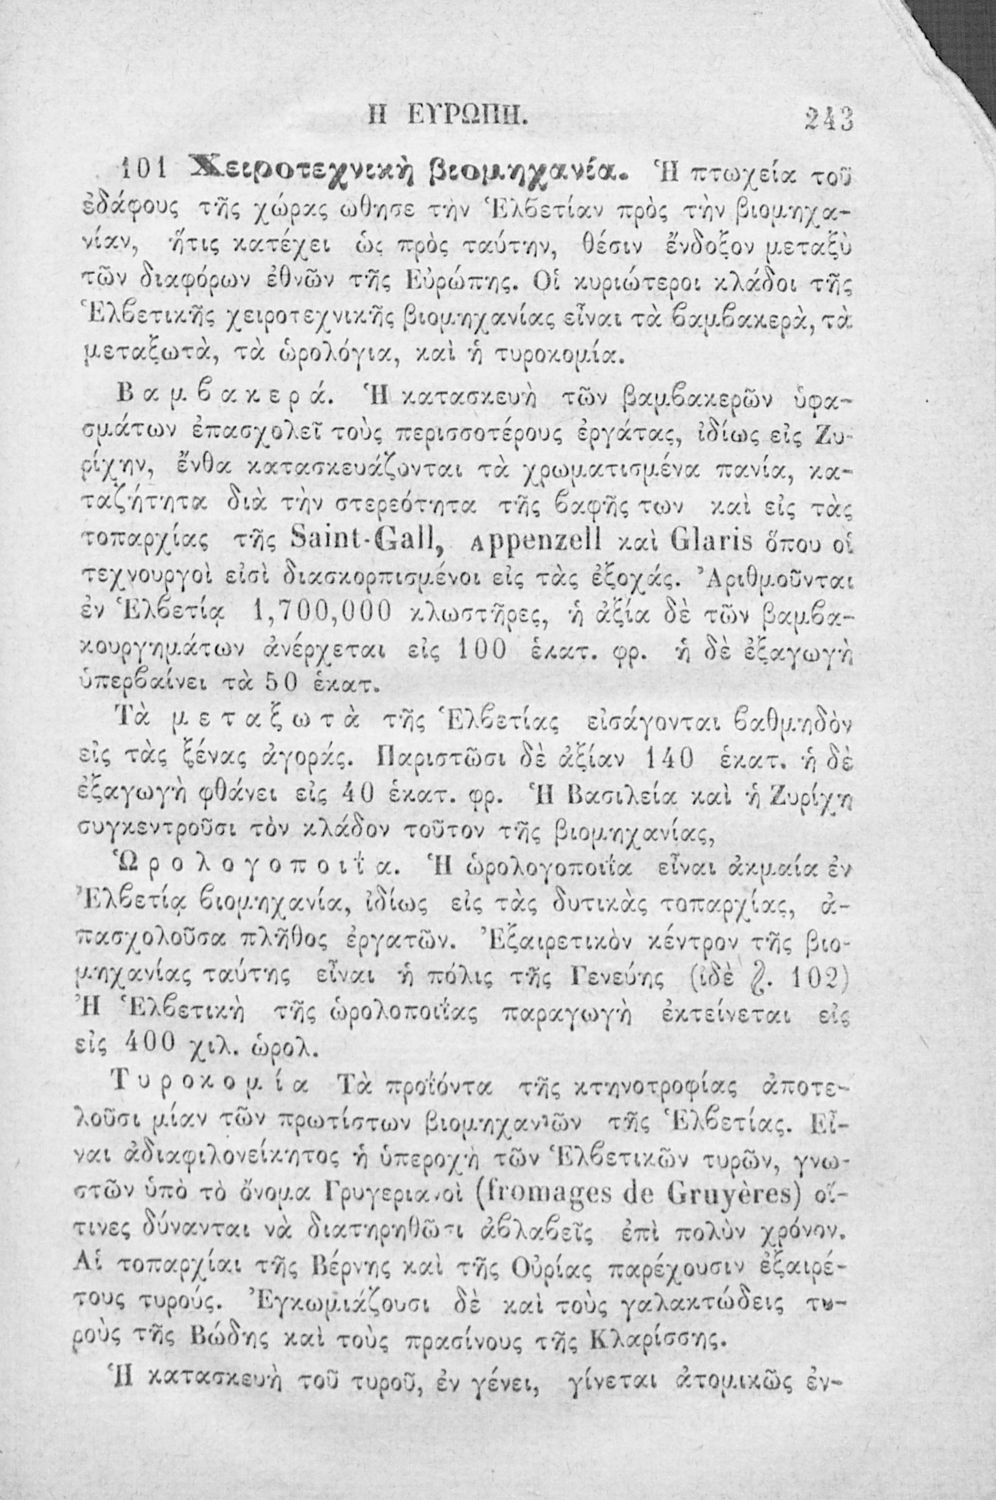 Η ΕΥΡΩΠΗ. 243
101 Χειροτεχνικὴ βιομηχανία. Ἡ πτωχεία τοῦ
ἐδάφους τῆς χώρας ωθησε τὴν Ἑλϐετίαν πρὸς τὴν βιομηχα-
νίαν, ἥτις κατέχει ὡς πρὸς ταύτην, θέσιν ἔνδοξον μεταξὺ
τῶν διαφόρων ἐθνῶν τῆς Εὐρώπης. Οἱ κυριώτεροι κλάδοι τῆς
Ἑλϐετικῆς χειροτεχνικῆς βιομηχανίας εἶναι τὰ ϐαμϐακερὰ, τὰ
μεταξωτὰ, τὰ ὡρολόγια, καὶ ἡ τυροκομία.
Βαμϐακερά. Ἡ κατασκευὴ τῶν βαμϐακερῶν ὑφα-
σμάτων ἐπασχολεῖ τοὺς περισσοτέρους ἐργάτας, ἰδίως εἰς Ζυ-
ρίχην, ἔνθα κατασκευάζονται τὰ χρωματισμένα πανία, κα-
ταζήτητα διὰ τὴν στερεότητα τῆς ϐαφῆς των καὶ εἰς τὰς
τοπαρχίας τῆς Saint-Gall, Appenzell καὶ Glaris ὅπου οἱ
τεχνουργοὶ εἰσὶ διασκορπισμένοι εἰς τὰς ἐξοχάς. Ἀριθμοῦνται
ἐν Ἑλϐετίᾳ 1,700,000 κλωστῆρες, ἡ ἀξία δὲ τῶν βαμϐα-
κουργημάτων ἀνέρχεται εἰς 100 ἑκατ. φρ. ἡ δὲ ἐξαγωγὴ
ὑπερϐαίνει τὰ 50 ἑκατ.
Τὰ μεταξωτὰ τῆς Ἑλϐετίας εἰσάγονται ϐαθμηδὸν
εἰς τὰς ξένας ἀγοράς. Παριστῶσι δὲ ἀξίαν 140 ἑκατ. ἡ δὲ
ἐξαγωγὴ φθάνει εἰς 40 ἑκατ. φρ. Ἡ Βασιλεία καὶ ἡ Ζυρίχη
συγκεντροῦσι τὸν κλάδον τοῦτον τῆς βιομηχανίας,
Ὡρολογοποιΐα. Ἡ ὡρολογοποιΐα εἶναι ἀκμαία ἐν
Ἑλϐετίᾳ ϐιομηχανία, ἰδίως εἰς τὰς δυτικὰς τοπαρχίας, ἀ-
πασχολοῦσα πλῆθος ἐργατῶν. Ἐξαιρετικὸν κέντρον τῆς βιο-
μηχανίας ταύτης εἶναι ἡ πόλις τῆς Γενεύης (ἰδὲ §. 102)
Ἡ Ἑλϐετικὴ τῆς ὡρολοποιΐας παραγωγὴ ἐκτείνεται εἰς
εἰς 400 χιλ. ὡρολ.
Τυροκομία Τὰ προϊόντα τῆς κτηνοτροφίας ἀποτε-
λοῦσι μίαν τῶν πρωτίστων βιομηχανιῶν τῆς Ἑλϐετίας. Εἶ-
ναι ἀδιαφιλονείκητος ἡ ὑπεροχὴ τῶν Ἑλϐετικῶν τυρῶν, γνω-
στῶν ὑπὸ τὸ ὄνομα Γρυγεριανοὶ (fromages de Gruyères) οἵ-
τινες δύνανται νὰ διατηρηθῶσι ἀϐλαϐεῖς ἐπὶ πολὺν χρόνον.
Αἱ τοπαρχίαι τῆς Βέρνης καὶ τῆς Οὐρίας παρέχουσιν ἐξαιρέ-
τους τυρούς. Ἐγκωμιάζουσι δὲ καὶ τοὺς γαλακτώδεις τυ-
ροὺς τῆς Βώδης καὶ τοὺς πρασίνους τῆς Κλαρίσσης.
Ἡ κατασκευὴ τοῦ τυροῦ, ἐν γένει, γίνεται ἀτομικῶς ἐν-